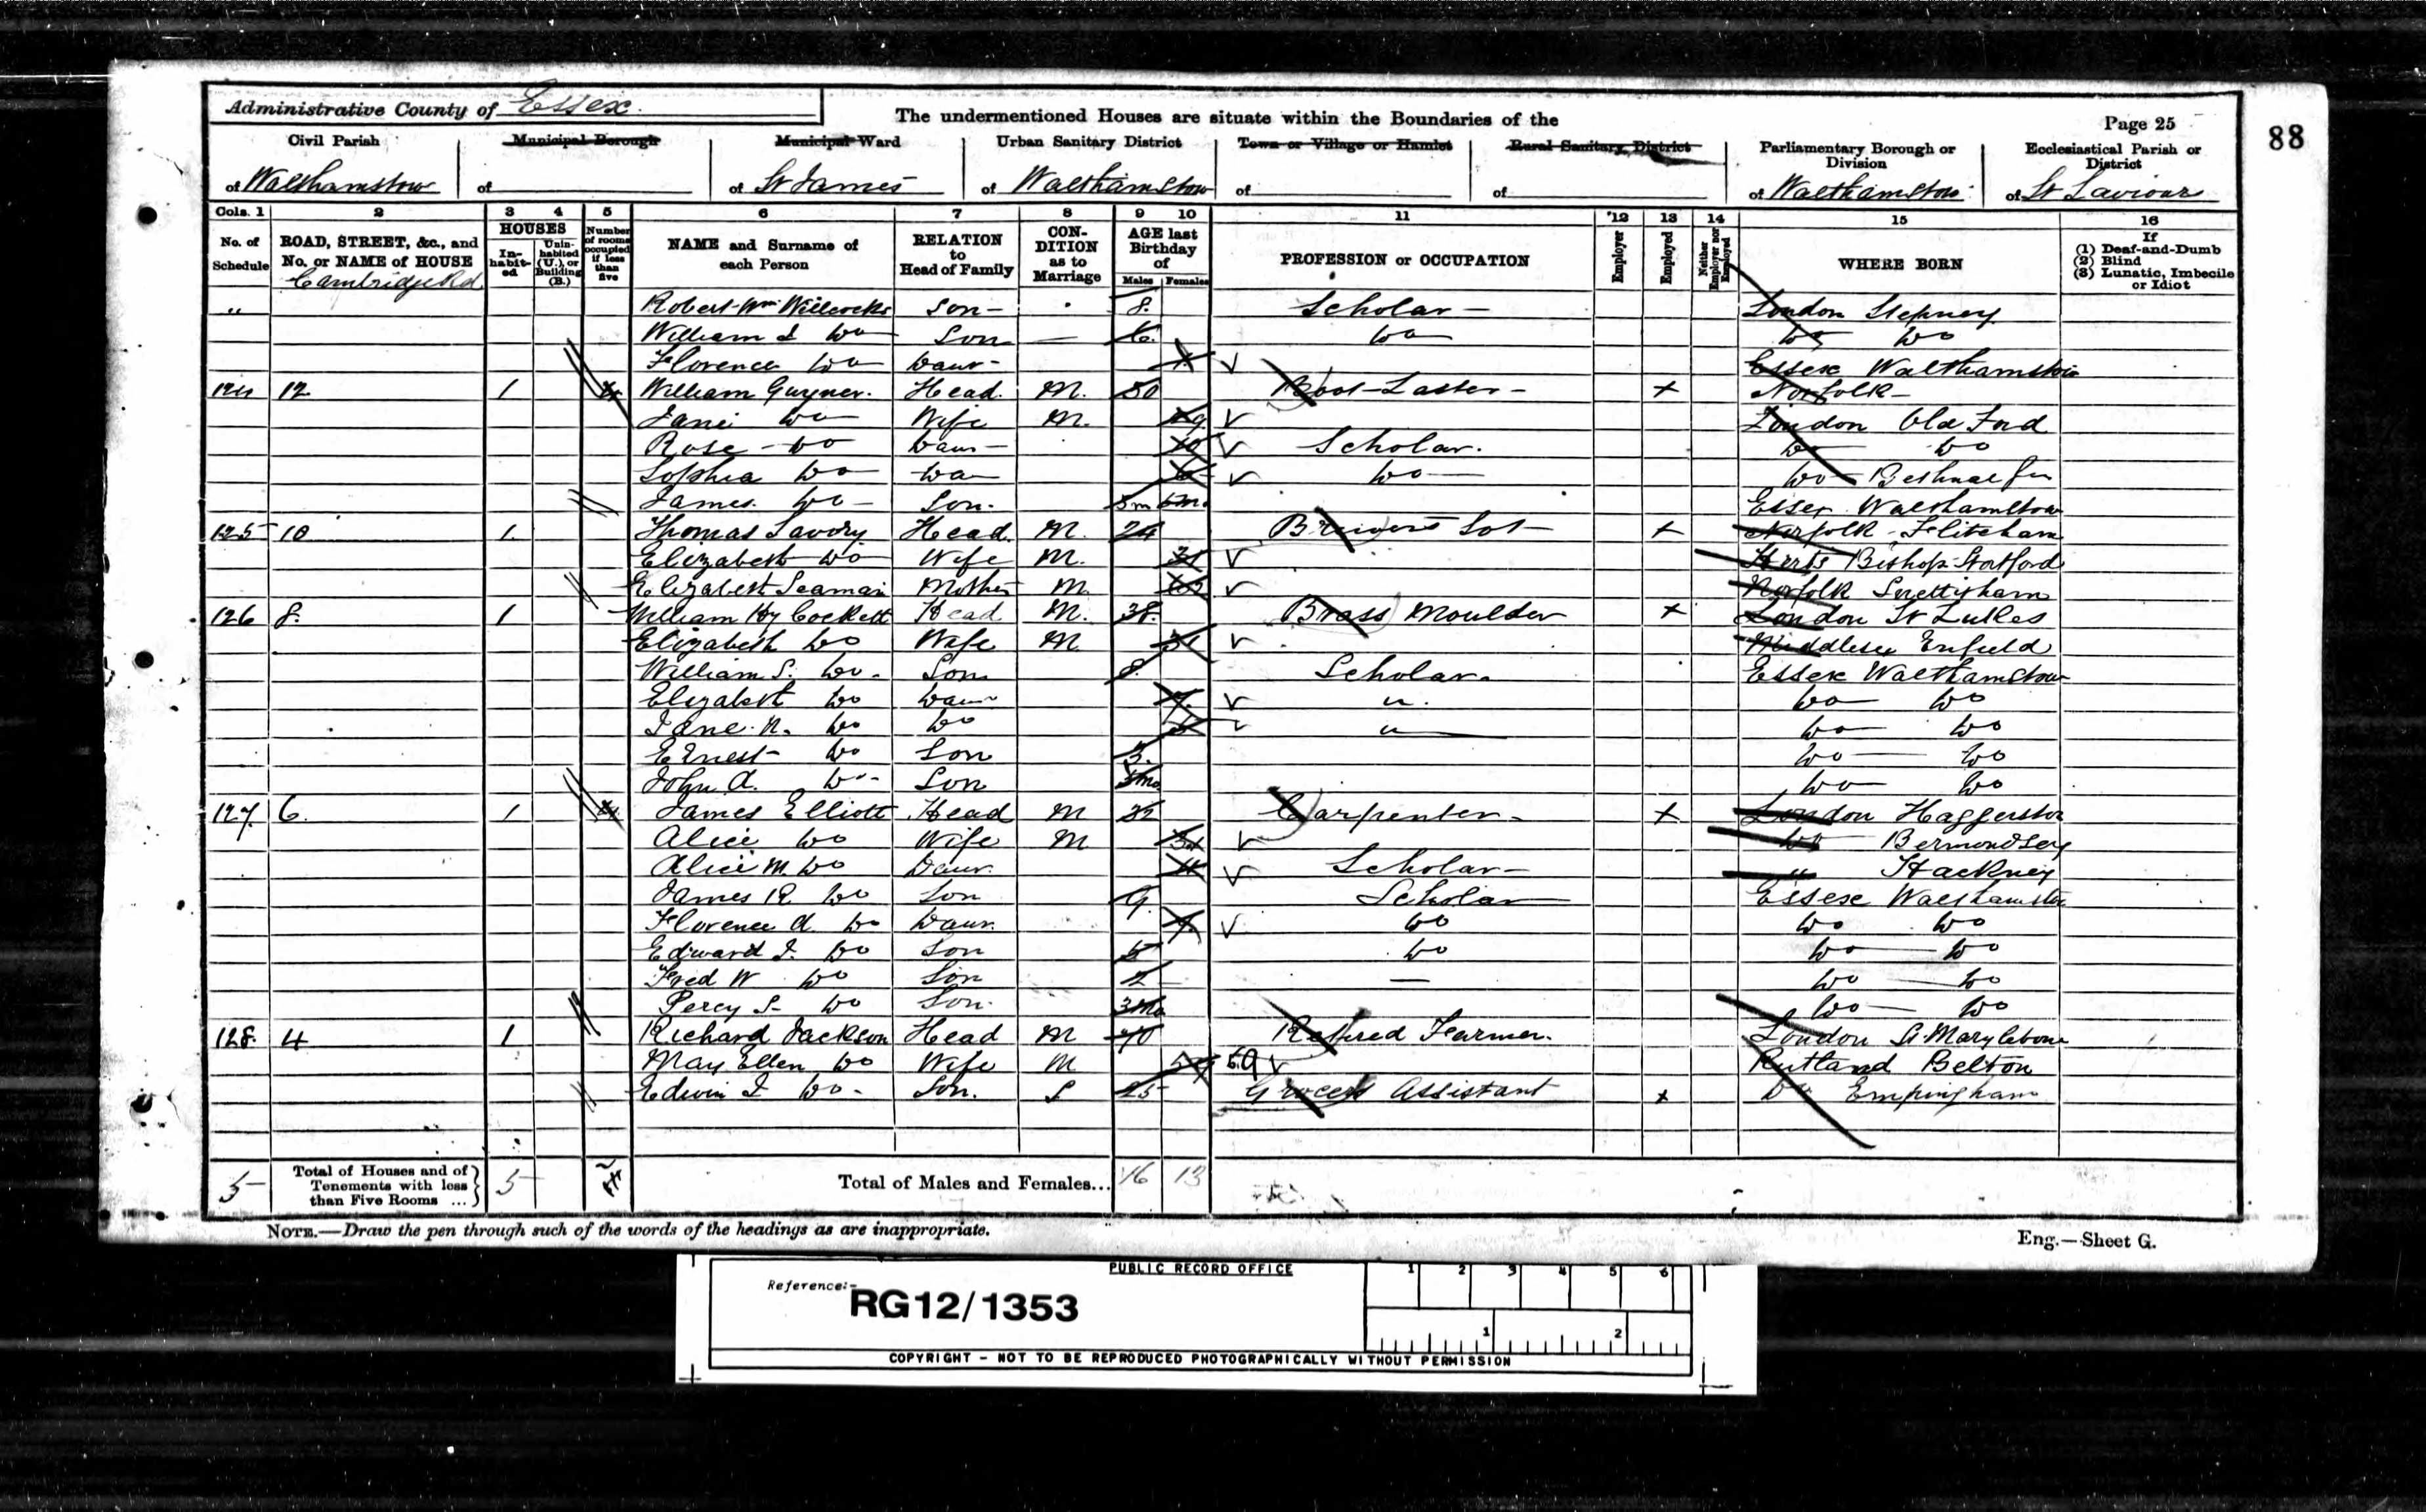 Administrative County of Essex.
The undermentioned Houses are situate within the Boundaries of the
Page 25
88
Civil Parish of Walthamstow
Municipal Borough of
Municipal Ward of St James
Urban Sanitary District of Walthamstow
Town or Village or Hamlet of
Rural Sanitary District of
Parliamentary Borough or Division of Walthamstow
Ecclesiastical Parish or District of St Saviours
Cols. 1 2 3 4 5 6 7 8 9 10 11 12 13 14 15 16
No. of Schedule
ROAD, STREET, &c., and No. or NAME of HOUSE
HOUSES
Inhabited
Uninhabited (U.), or Building (B.)
Number of rooms occupied if less than five
NAME and Surname of each Person
RELATION to Head of Family
CONDITION as to Marriage
AGE last Birthday of
Males Females
PROFESSION or OCCUPATION
Employer
Employed
Neither Employer nor Employed
WHERE BORN
If (1) Deaf-and-Dumb (2) Blind (3) Lunatic, Imbecile or Idiot
Cambridge Rd
" Robert Wm Willcocks Son 8 Scholar London Stepney
William J Do Son 6 Do Do Do
Florence Do Daur Essex Walthamstow
124 12 1 4 William Guymer Head M. 50 Boot Laster x Norfolk
Jane Do Wife M. London Old Ford
Rose Do Daur Scholar. Do Do
Sophia Do Do Do Do Bethnal Gn
James Do Son. 5m Essex Walthamstow
125 10 1 Thomas Savory Head M. 24 x Norfolk Flitcham
Elizabeth Do Wife M. 31 Herts Bishop Stortford
Elizabeth Seaman Mother M. Norfolk Snettisham
126 8. 1 William Hy Cockett Head M. 38. Brass Moulder x London St Lukes
Elizabeth Do Wife M Middlesex Enfield
William S. Do Son 8. Scholar. Essex Walthamstow
Elizabeth Do Daur 7. " Do Do
Jane Do Do " Do Do
Ernest Do Son 3. Do Do
John A. Do Son Do Do
127. 6. 1 4 James Elliott Head M 32 Carpenter x London Haggerston
Alice Do Wife M Do Bermondsey
Alice M. Do Daur. 11 Scholar " Hackney
James R. Do Son 9. Scholar Essex Walthamstow
Florence A. Do Daur. 7 Do Do Do
Edward J. Do Son 5 Do Do Do
Fred W Do Son 2 — Do Do
Percy S. Do Son. 3mo Do Do
128. 4 1 Richard Jackson Head M 70 Retired Farmer. London St Marylebone
Mary Ellen Do Wife M 59 Rutland Belton
Edwin J Do Son. S 25 Grocers Assistant x Do Empingham
5 Total of Houses and of Tenements with less than Five Rooms ... 5
Total of Males and Females... 16 13
NOTE.—Draw the pen through such of the words of the headings as are inappropriate.
Eng.—Sheet G.
PUBLIC RECORD OFFICE
1 2 3 4 5 6
Reference:- RG12/1353
1 2
COPYRIGHT - NOT TO BE REPRODUCED PHOTOGRAPHICALLY WITHOUT PERMISSION